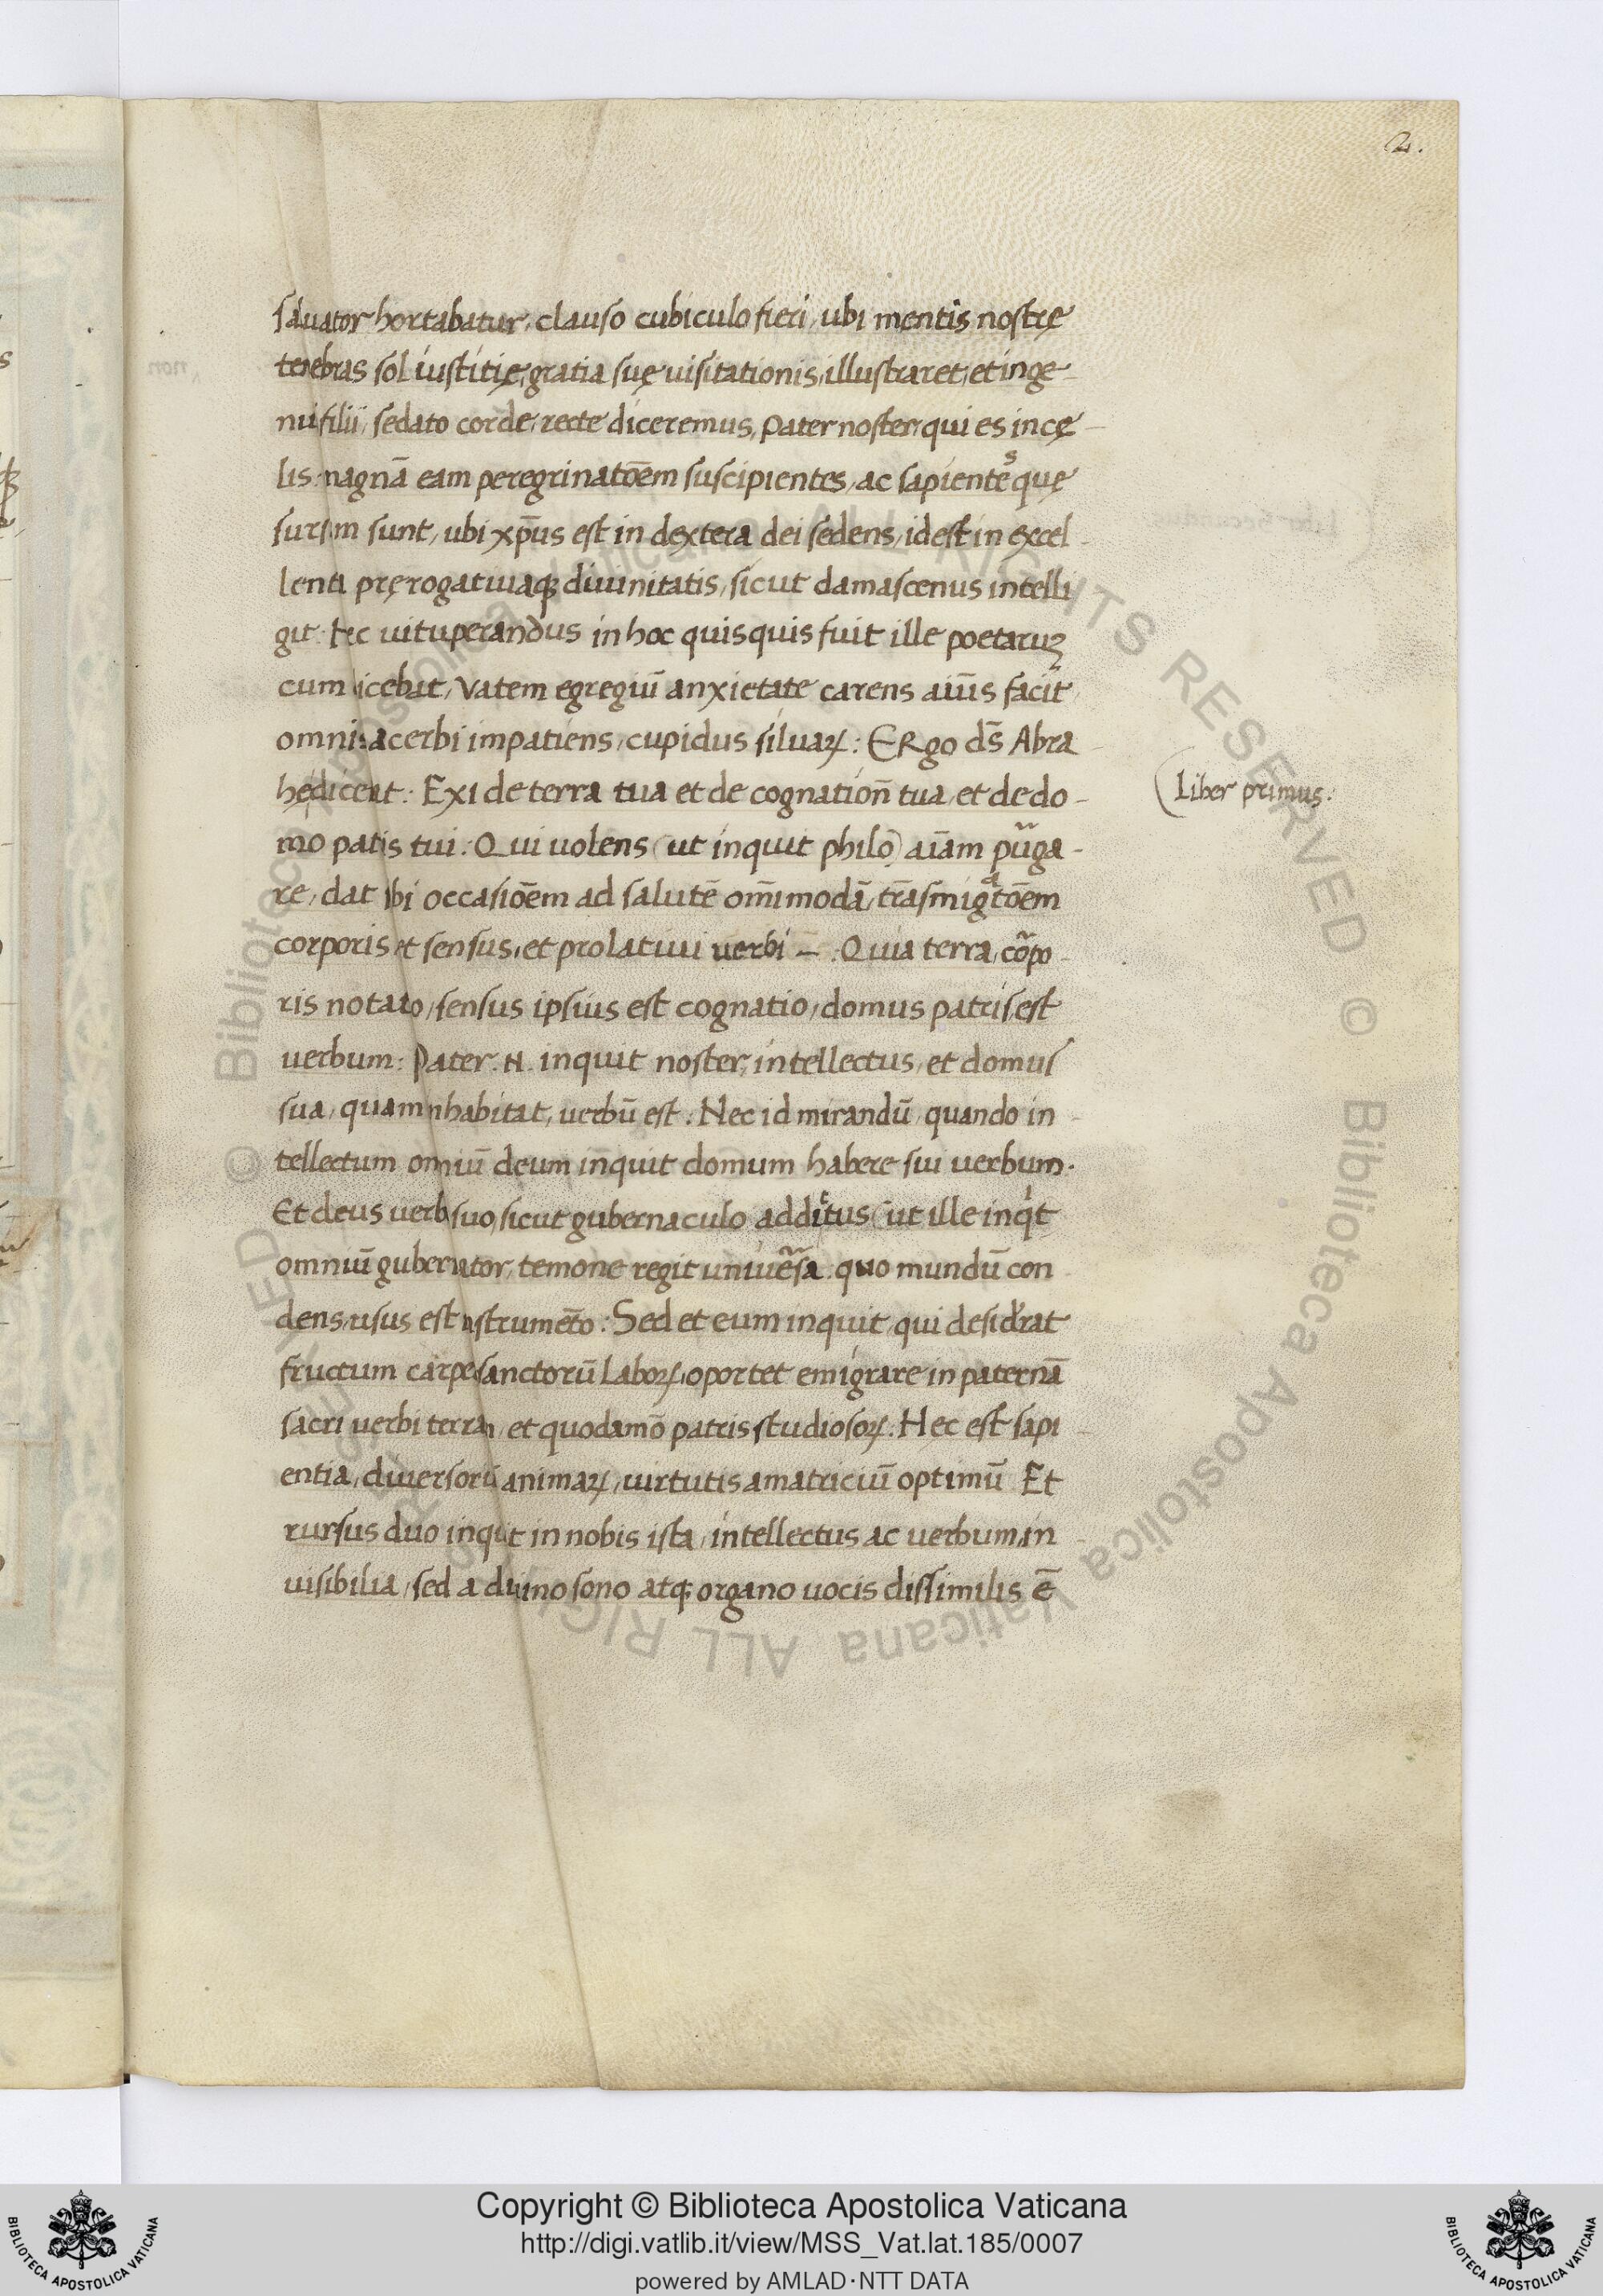 2.
saluator hortabatur, clauso cubiculo fieri, ubi mentis nostrę
tenebras sol iustitię, gratia suę uisitationis, illustraret, et inge
nui filii, sedato corde, recte diceremus, Pater noster qui es in cę
lis: magnā eam peregrinatōem suscipientes, ac sapientes quę
sursum sunt, ubi xp̄us est in dextera dei sedens, id est in excel
lenti pręrogatiuaq; diuinitatis, sicut damascenus intelli
git: Nec uituperandus in hoc quisquis fuit ille poetaruꝫ
cum dicebat, Vatem egregiū anxietate carens aiūs facit,
omnis acerbi impatiens, cupidus siluaꝝ: ERgo dṡ Abra
hę dicebat: Exi de terra tua et de cognation̄ tua, et de do
Liber primus.
mo patris tui: Qui uolens (ut inquit philo) aīam puᷓga
re, dat sibi occasiōem ad salutē om̄imodā, trāsmigᵃtōem
corporis, et sensus, et prolatiui uerbi — : Quia terra, coᷓpo
ris nota ratio, sensus ipsius est cognatio, domus patris, est
uerbum: Pater .N. inquit noster, intellectus, et domus
sua, quam inhabitat, uerbū est: Nec id mirandū, quando in
tellectum omniū deum inquit domum habere sui uerbum.
Et deus uerbo suo, sicut gubernaculo additus (ut ille inqⁱt
omniū gubernator, temone regit uniueᷓsa: quo mundū con
dens, usus est instrumēto: Sed et eum inquit, qui desid'rat
fructum carpere sanctorū laboꝝ, oportet emigrare in paternā
sacri uerbi terram, et quodamō patris studiosoꝝ: Hec est sapi
entia, diuersoriū animaꝝ, uirtutis amatriciū optimū Et
rursus duo inquit in nobis ista, intellectus ac uerbum, in
uisibilia, sed a diuino sono atq; organo uocis dissimilis ē
© Biblioteca Apostolica Vaticana ALL RIGHTS RESERVED
Copyright © Biblioteca Apostolica Vaticana
http://digi.vatlib.it/view/MSS_Vat.lat.185/0007
powered by AMLAD·NTT DATA
BIBLIOTECA APOSTOLICA VATICANA
BIBLIOTECA APOSTOLICA VATICANA